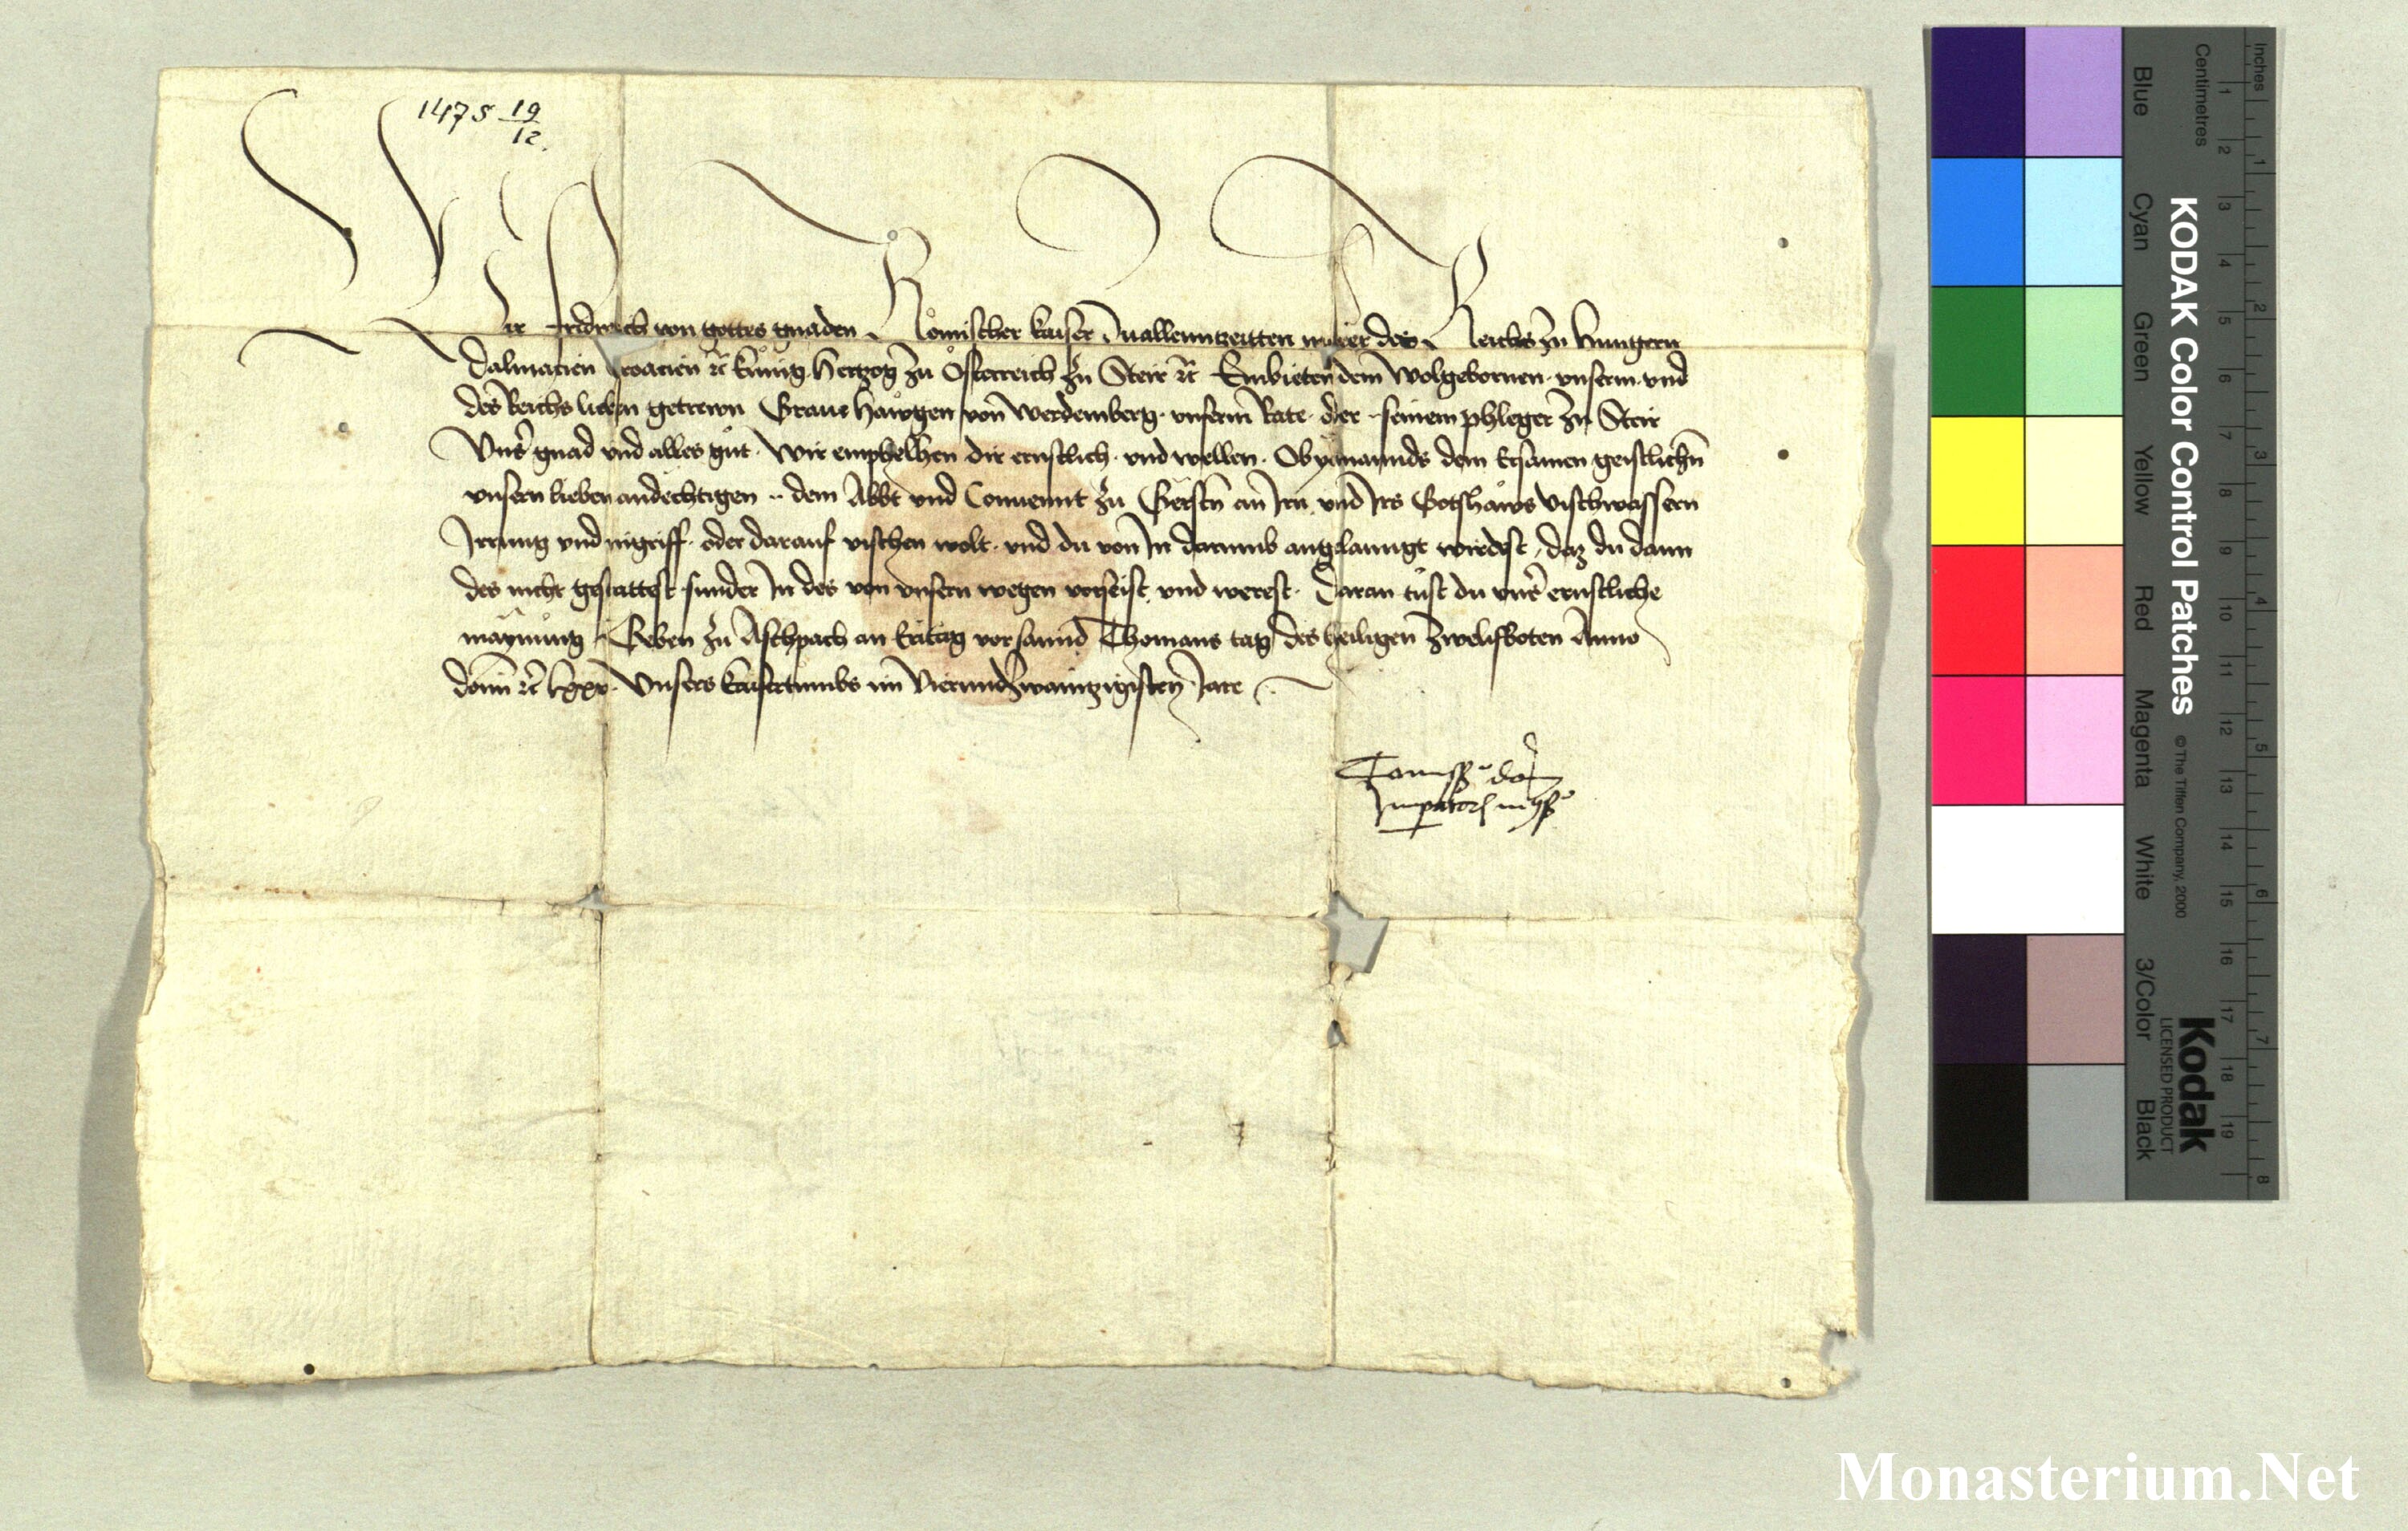 1475 19/12.
Wir Fridreich von gottes gnaden Römischer kaiser zuallenntzeitten merer des Reichs zu Hungern
Dalmacien Croacien etc kunig Hertzog zu Österreich zu Steir etc Embieten dem Wolgebornen unserm und
des Reichs lieben getrewn Grave Hawgen von Werdemberg unserm Rate oder seinem phleger zu Steir
Unser gnad und alles gut. Wir emphelhen dir ernstlich und wellen. Ob yemannds dem Ersamen geistlichn
unsern lieben andechtigen .. dem Abbt und Convennt zu Gersten an Irn und Irs Gotshaws vischwassern
Irrung und ingriff oder darauf vischen wolt und du von In darumb angelanngt wirdest, daz du dann
des nicht gestattest sunder In des von unsern wegen vorseist und werest. Daran tust du unser ernstliche
maynung Geben zu Aschpach an Eritag vor sannd Thomans tag des heiligen zwelifboten Anno
domini etc lxxv. Unsers kaisertumbs im Vierundzwainzigisten Jare
Commissio domini
Imperatoris in consilio
KODAK Color Control Patches © The Tiffen Company, 2000
Kodak
LICENSED PRODUCT
Blue Cyan Green Yellow Red Magenta White 3/Color Black
Inches 1 2 3 4 5 6 7 8
Centimetres 1 2 3 4 5 6 7 8 9 10 11 12 13 14 15 16 17 18 19
Monasterium.Net